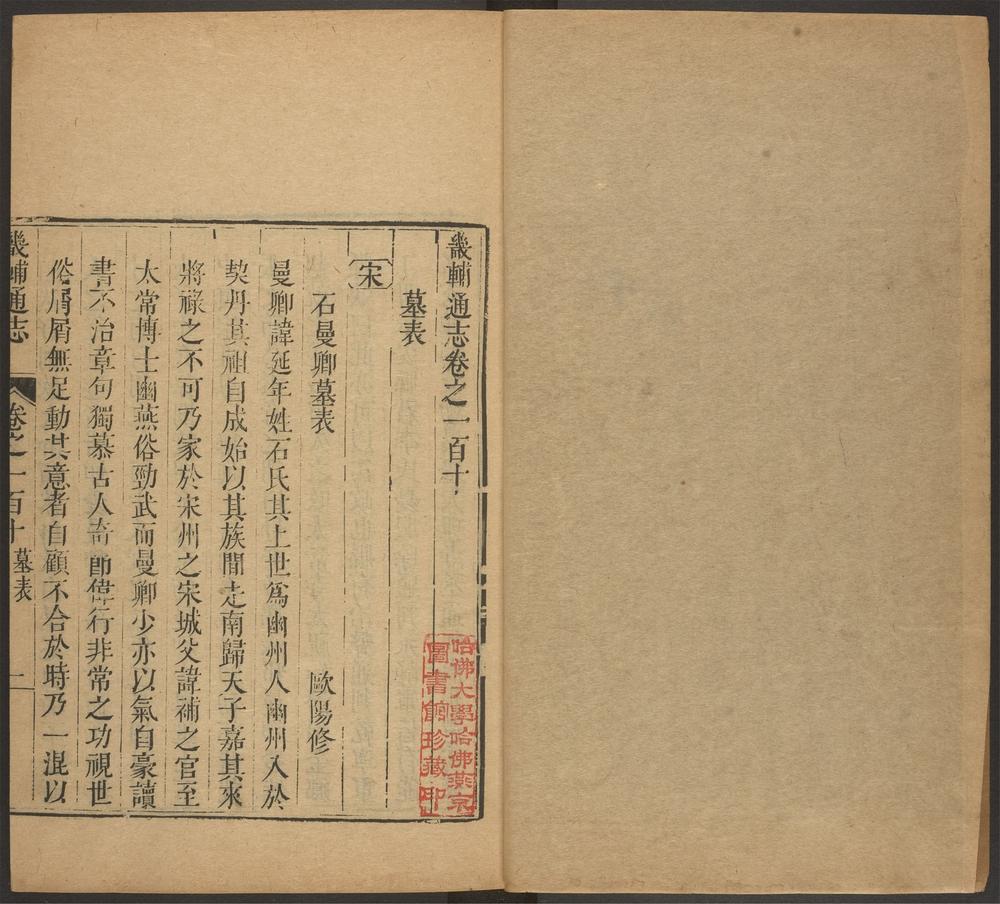 畿輔通志卷之一百十
墓表
宋
石曼卿墓表 歐陽修
曼卿諱延年姓石氏其上世爲幽州人幽州入於
契丹其祖自成始以其族閒走南歸天子嘉其來
將祿之不可乃家於宋州之宋城父諱補之官至
太常博士幽燕俗勁武而曼卿少亦以氣自豪讀
書不治章句獨慕古人奇節偉行非常之功視世
俗屑屑無足動其意者自顧不合於時乃一混以
畿輔通志 卷之一百十 墓表 一
哈佛大學哈佛燕京
圖書館珍藏印